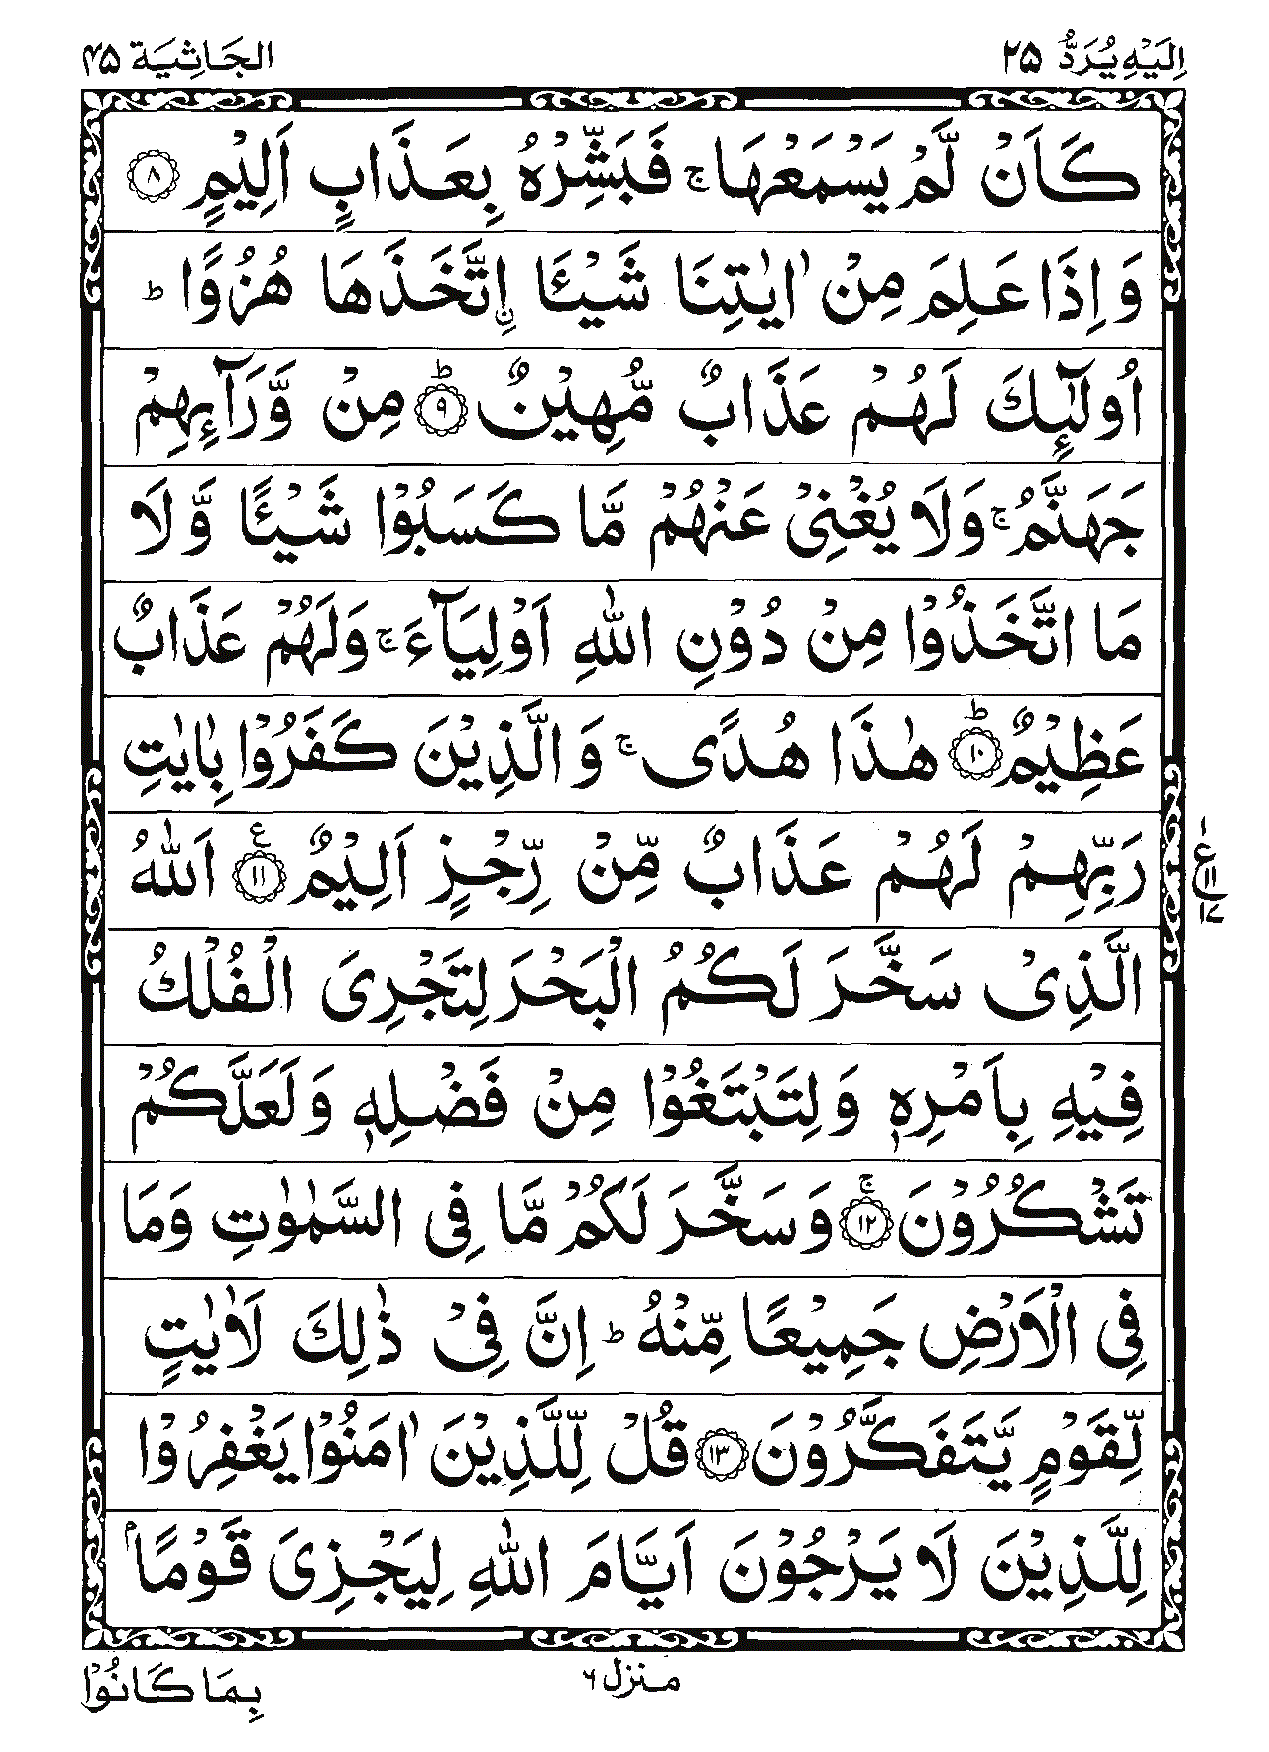 اِلَیْهِ یُرَدُّ ۲۵
الجَاثِیَة ۴۵
كَاَنْ لَّمْ یَسْمَعْهَا ۚ فَبَشِّرْهُ بِعَذَابٍ اَلِیْمٍ ﴿۸﴾
وَ اِذَا عَلِمَ مِنْ اٰیٰتِنَا شَیْـَٔا اِ۟تَّخَذَهَا هُزُوًا ؕ
اُولٰٓىِٕكَ لَهُمْ عَذَابٌ مُّهِیْنٌ ؕ﴿۹﴾ مِنْ وَّرَآىِٕهِمْ
جَهَنَّمُ ۚ وَ لَا یُغْنِیْ عَنْهُمْ مَّا كَسَبُوْا شَیْـًٔا وَّ لَا
مَا اتَّخَذُوْا مِنْ دُوْنِ اللّٰهِ اَوْلِیَآءَ ۚ وَ لَهُمْ عَذَابٌ
عَظِیْمٌ ؕ﴿۱۰﴾ هٰذَا هُدًی ۚ وَ الَّذِیْنَ كَفَرُوْا بِاٰیٰتِ
رَبِّهِمْ لَهُمْ عَذَابٌ مِّنْ رِّجْزٍ اَلِیْمٌ ﴿۱۱﴾ ع اَللّٰهُ
الَّذِیْ سَخَّرَ لَكُمُ الْبَحْرَ لِتَجْرِیَ الْفُلْكُ
فِیْهِ بِاَمْرِهٖ وَ لِتَبْتَغُوْا مِنْ فَضْلِهٖ وَ لَعَلَّكُمْ
تَشْكُرُوْنَ ۚ﴿۱۲﴾ وَ سَخَّرَ لَكُمْ مَّا فِی السَّمٰوٰتِ وَ مَا
فِی الْاَرْضِ جَمِیْعًا مِّنْهُ ؕ اِنَّ فِیْ ذٰلِكَ لَاٰیٰتٍ
لِّقَوْمٍ یَّتَفَكَّرُوْنَ ﴿۱۳﴾ قُلْ لِّلَّذِیْنَ اٰمَنُوْا یَغْفِرُوْا
لِلَّذِیْنَ لَا یَرْجُوْنَ اَیَّامَ اللّٰهِ لِیَجْزِیَ قَوْمًۢا
منزل ۶
بِمَا كَانُوْا